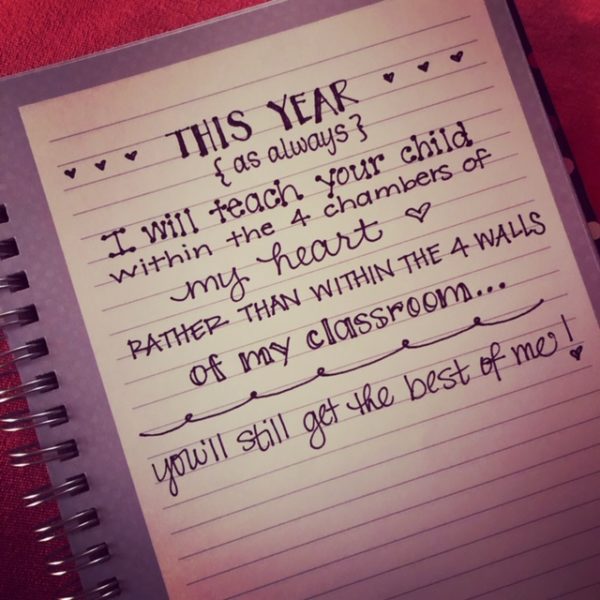 THIS YEAR
{as always}
I will teach your child
within the 4 chambers of
my heart
RATHER THAN WITHIN THE 4 WALLS
of my classroom...
you'll still get the best of me!